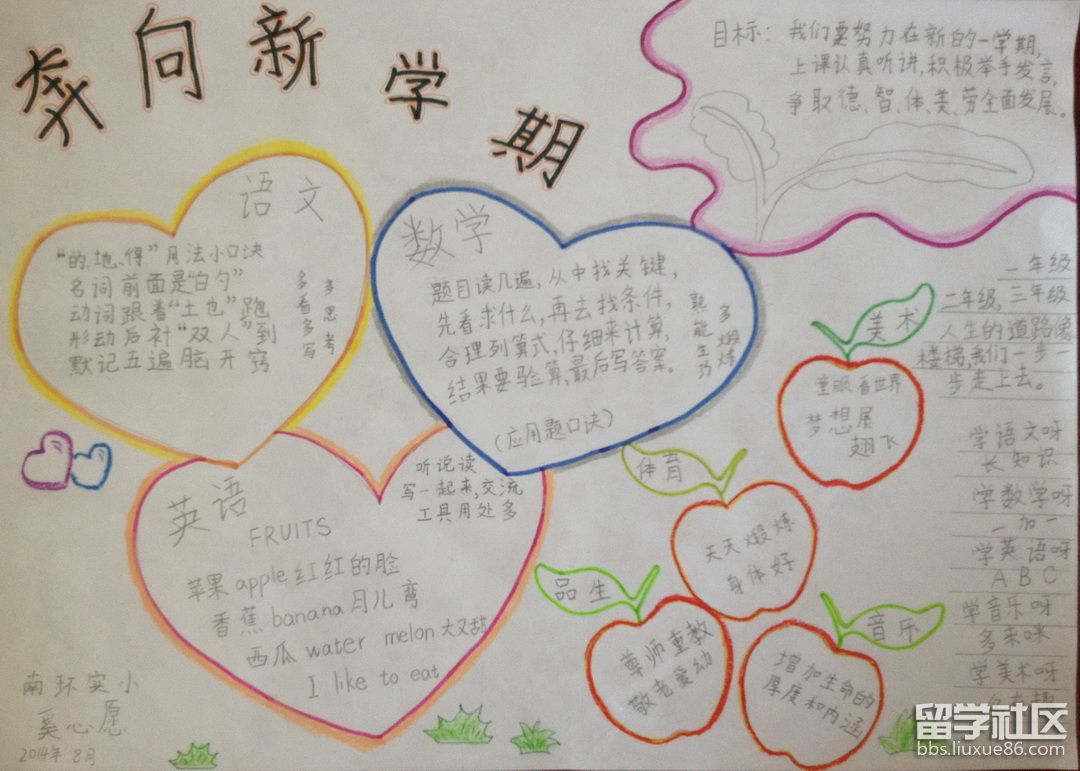 奔向新学期
目标：我们要努力在新的一学期，
上课认真听讲，积极举手发言，
争取德、智、体、美、劳全面发展。
语文
“的、地、得”用法小口诀
名词前面是“白勺”
动词跟着“土也”跑
形动后衬“双人”到
默记五遍脑开窍
多看多写
多思考
数学
题目读几遍，从中找关键，
先看求什么，再去找条件，
合理列算式，仔细来计算，
结果要验算，最后写答案。
（应用题口诀）
熟能生巧
多煅炼
英语
FRUITS
听说读
写一起来，交流
工具用处多
苹果 apple 红红的脸
香蕉 banana 月儿弯
西瓜 water melon 大又甜
I like to eat
美术
童眼看世界
梦想展
翅飞
体育
天天煅炼
身体好
品生
尊师重教
敬老爱幼
音乐
增加生命的
厚度和内涵
一年级
二年级，三年级
人生的道路像
楼梯，我们一步一
步走上去。
学语文呀
长知识
学数学呀
一加一
学英语呀
A B C
学音乐呀
多来咪
学美术呀
南环实小
奚心愿
2014年8月
留学社区
bbs.liuxue86.com